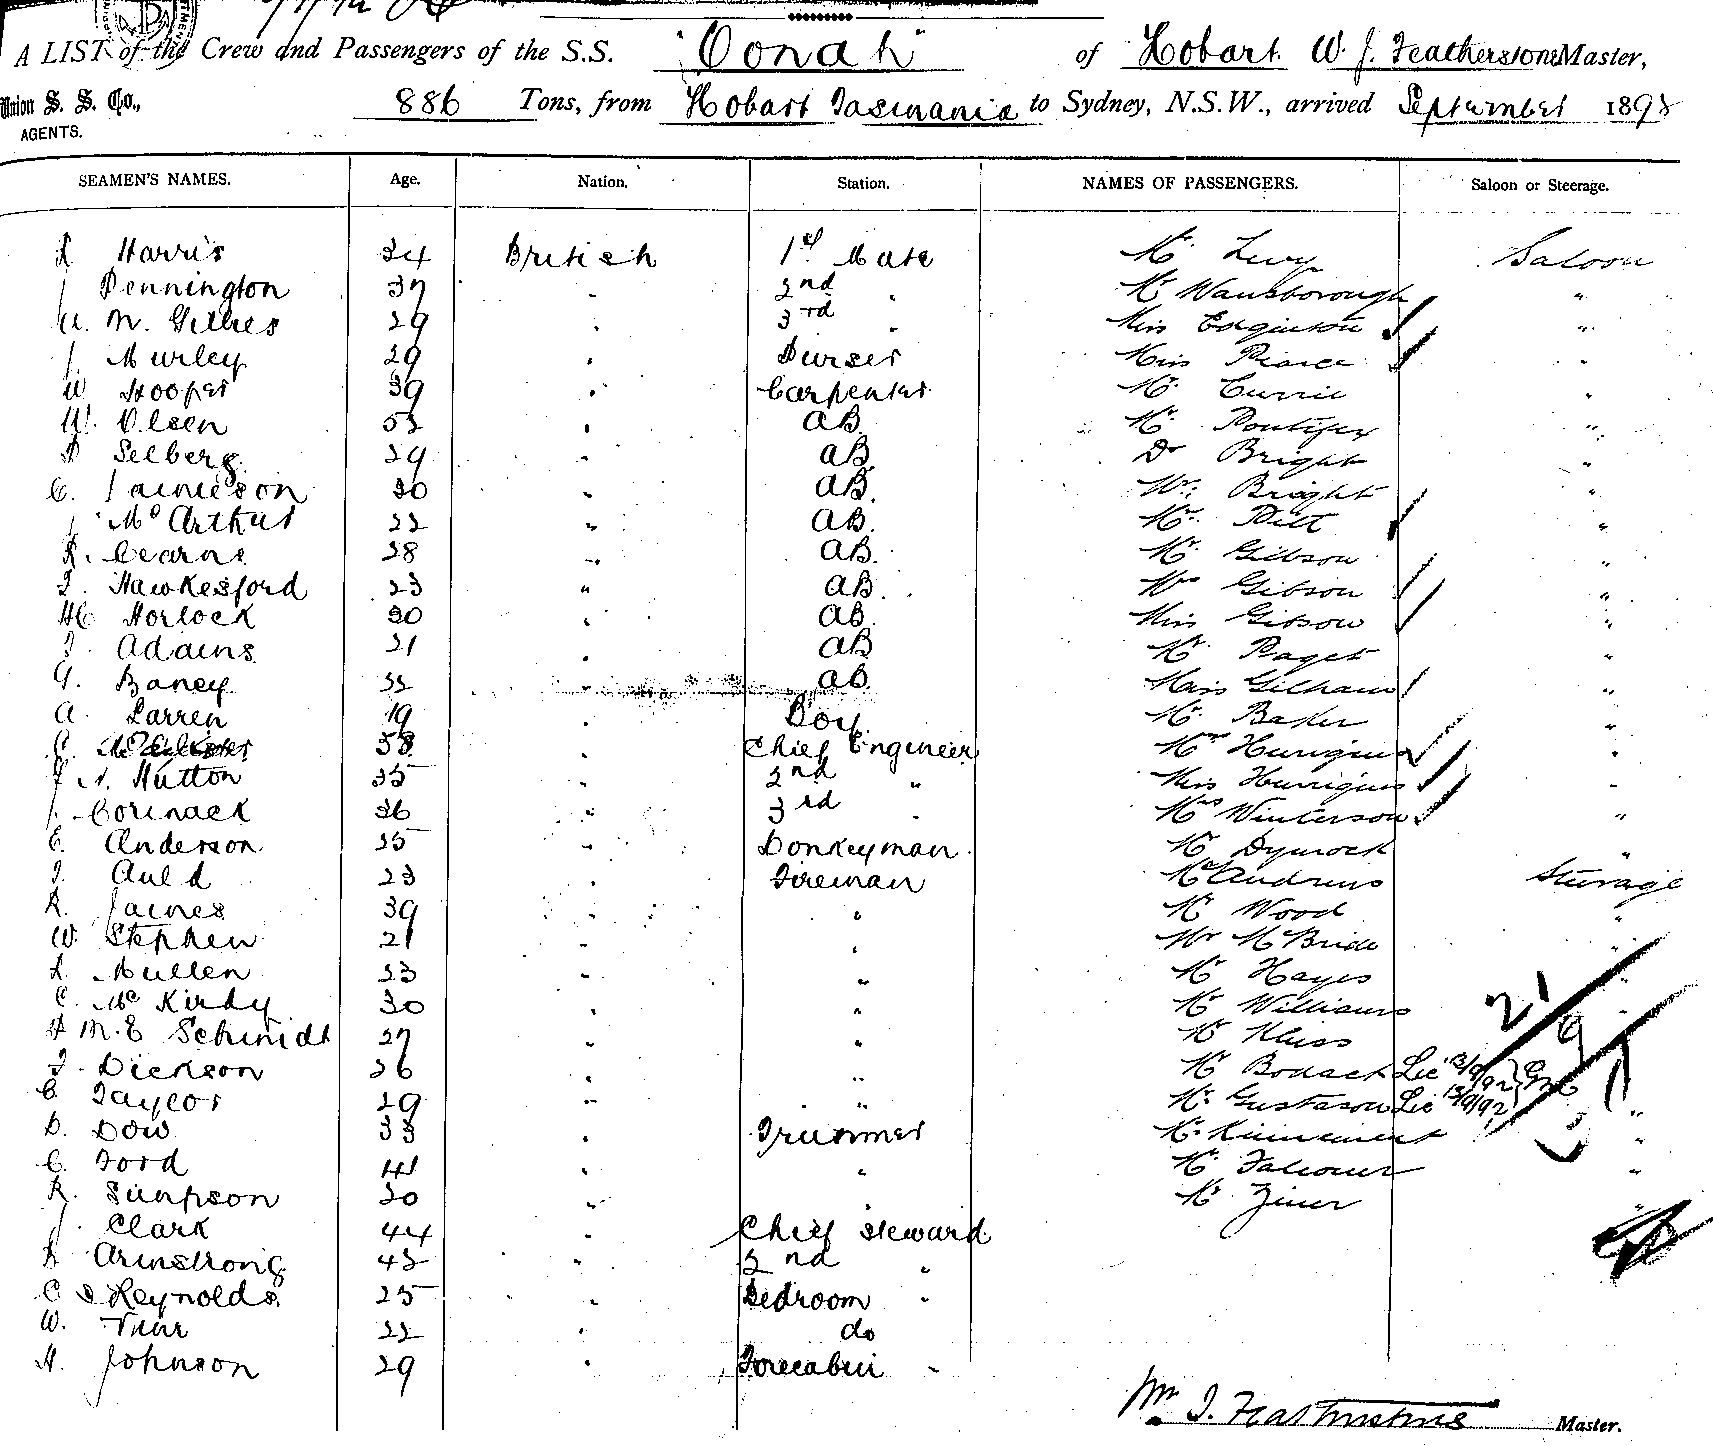 A LIST of the Crew and Passengers of the S.S. "Oonah" of Hobart. W. J. Featherstone Master,
Union S. S. Co., 886 Tons, from Hobart Tasmania to Sydney, N.S.W., arrived September 1892
AGENTS.
SEAMEN'S NAMES. Age. Nation. Station. NAMES OF PASSENGERS. Saloon or Steerage.
Harris 34 British 1st Mate Mr Levy Saloon
J Pennington 37 " 2nd " Mr Wansborough "
A. M. Gillies 29 " 3rd " Miss Edginton "
J. Murley 29 " Purser Miss Pearce "
W Hooper 39 " Carpenter Mr Currie "
W. Olsen 52 " AB. Mr Pontifex "
Selberg 29 " AB Dr Bright "
C. Jamieson 30 " AB. Bright "
J. McArthur 22 " AB. Mr "
R. Cearns 28 " AB. Mr Gibson "
T. Hawkesford 23 " AB. Mrs Gibson "
Horlock 30 " AB. Miss Gibson "
T. Adams 21 " AB Mr Paget "
G. Baney 32 " AB. Miss Gilham "
A. Larren 19 " Boy Mr Baker "
58 " Chief Engineer "
Hutton 35 " 2nd " Miss "
J. Cormack 36 " 3rd " Mrs Winterson "
E. Anderson 25 " Donkeyman Mr Dymock "
T. Auld 23 " Fireman Mr Andrews Steerage
R. James 39 " " Mr Wood "
W. Stephen 21 " " Mr McBride "
Mullen 23 " " Mr Hayes "
C. McKirdy 30 " " Mr Williams "
M. E Schmidt 27 " " Mr 21
T. Dickson 26 " " Mr Bodack Lic 13/9/92 9
C. Taylor 29 " " Mr Gustason Lic 13/9/92 "
D. Dow 33 " Trimmer Mr "
C. Ford 41 " " Mr Falconer "
R. Simpson 20 " " Mr "
J. Clark 44 " Chief Steward
Armstrong 42 " 2nd "
Reynolds 25 " Bedroom "
W. 22 " do
H. Johnson 29 " Forecabin "
Wm J. Featherstone Master.